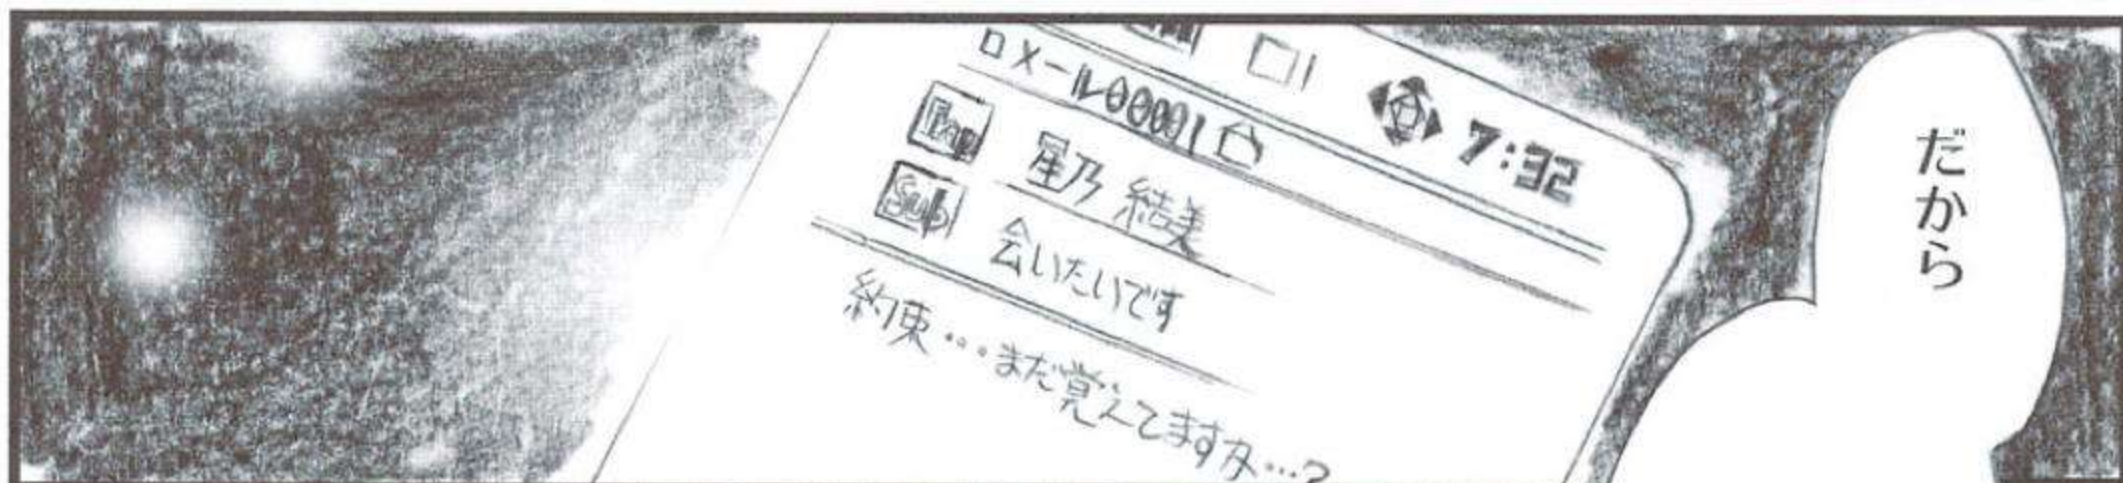 だから
7:32
ロメール00001
星乃 結美
Sub
会いたいです
約束…まだ覚えてますか…?